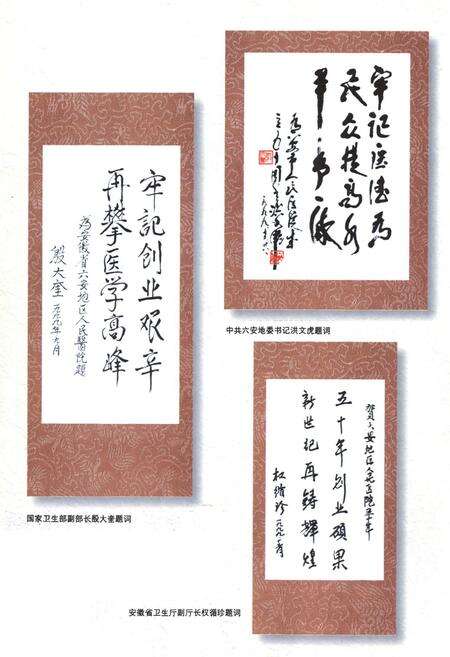 牢記创业艰辛
再攀医学高峰
為安徽省六安地区人民醫院題
殷大奎 一九九九年七月
国家卫生部副部长殷大奎题词
牢记医德为
民众提高水
中共六安地委书记洪文虎题词
贺六安地区人民医院五十年
五十年创业硕果
新世纪再铸輝煌
权循珍
安徽省卫生厅副厅长权循珍题词